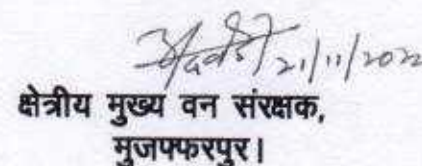 21/11/2022
क्षेत्रीय मुख्य वन संरक्षक,
मुजफ्फरपुर।